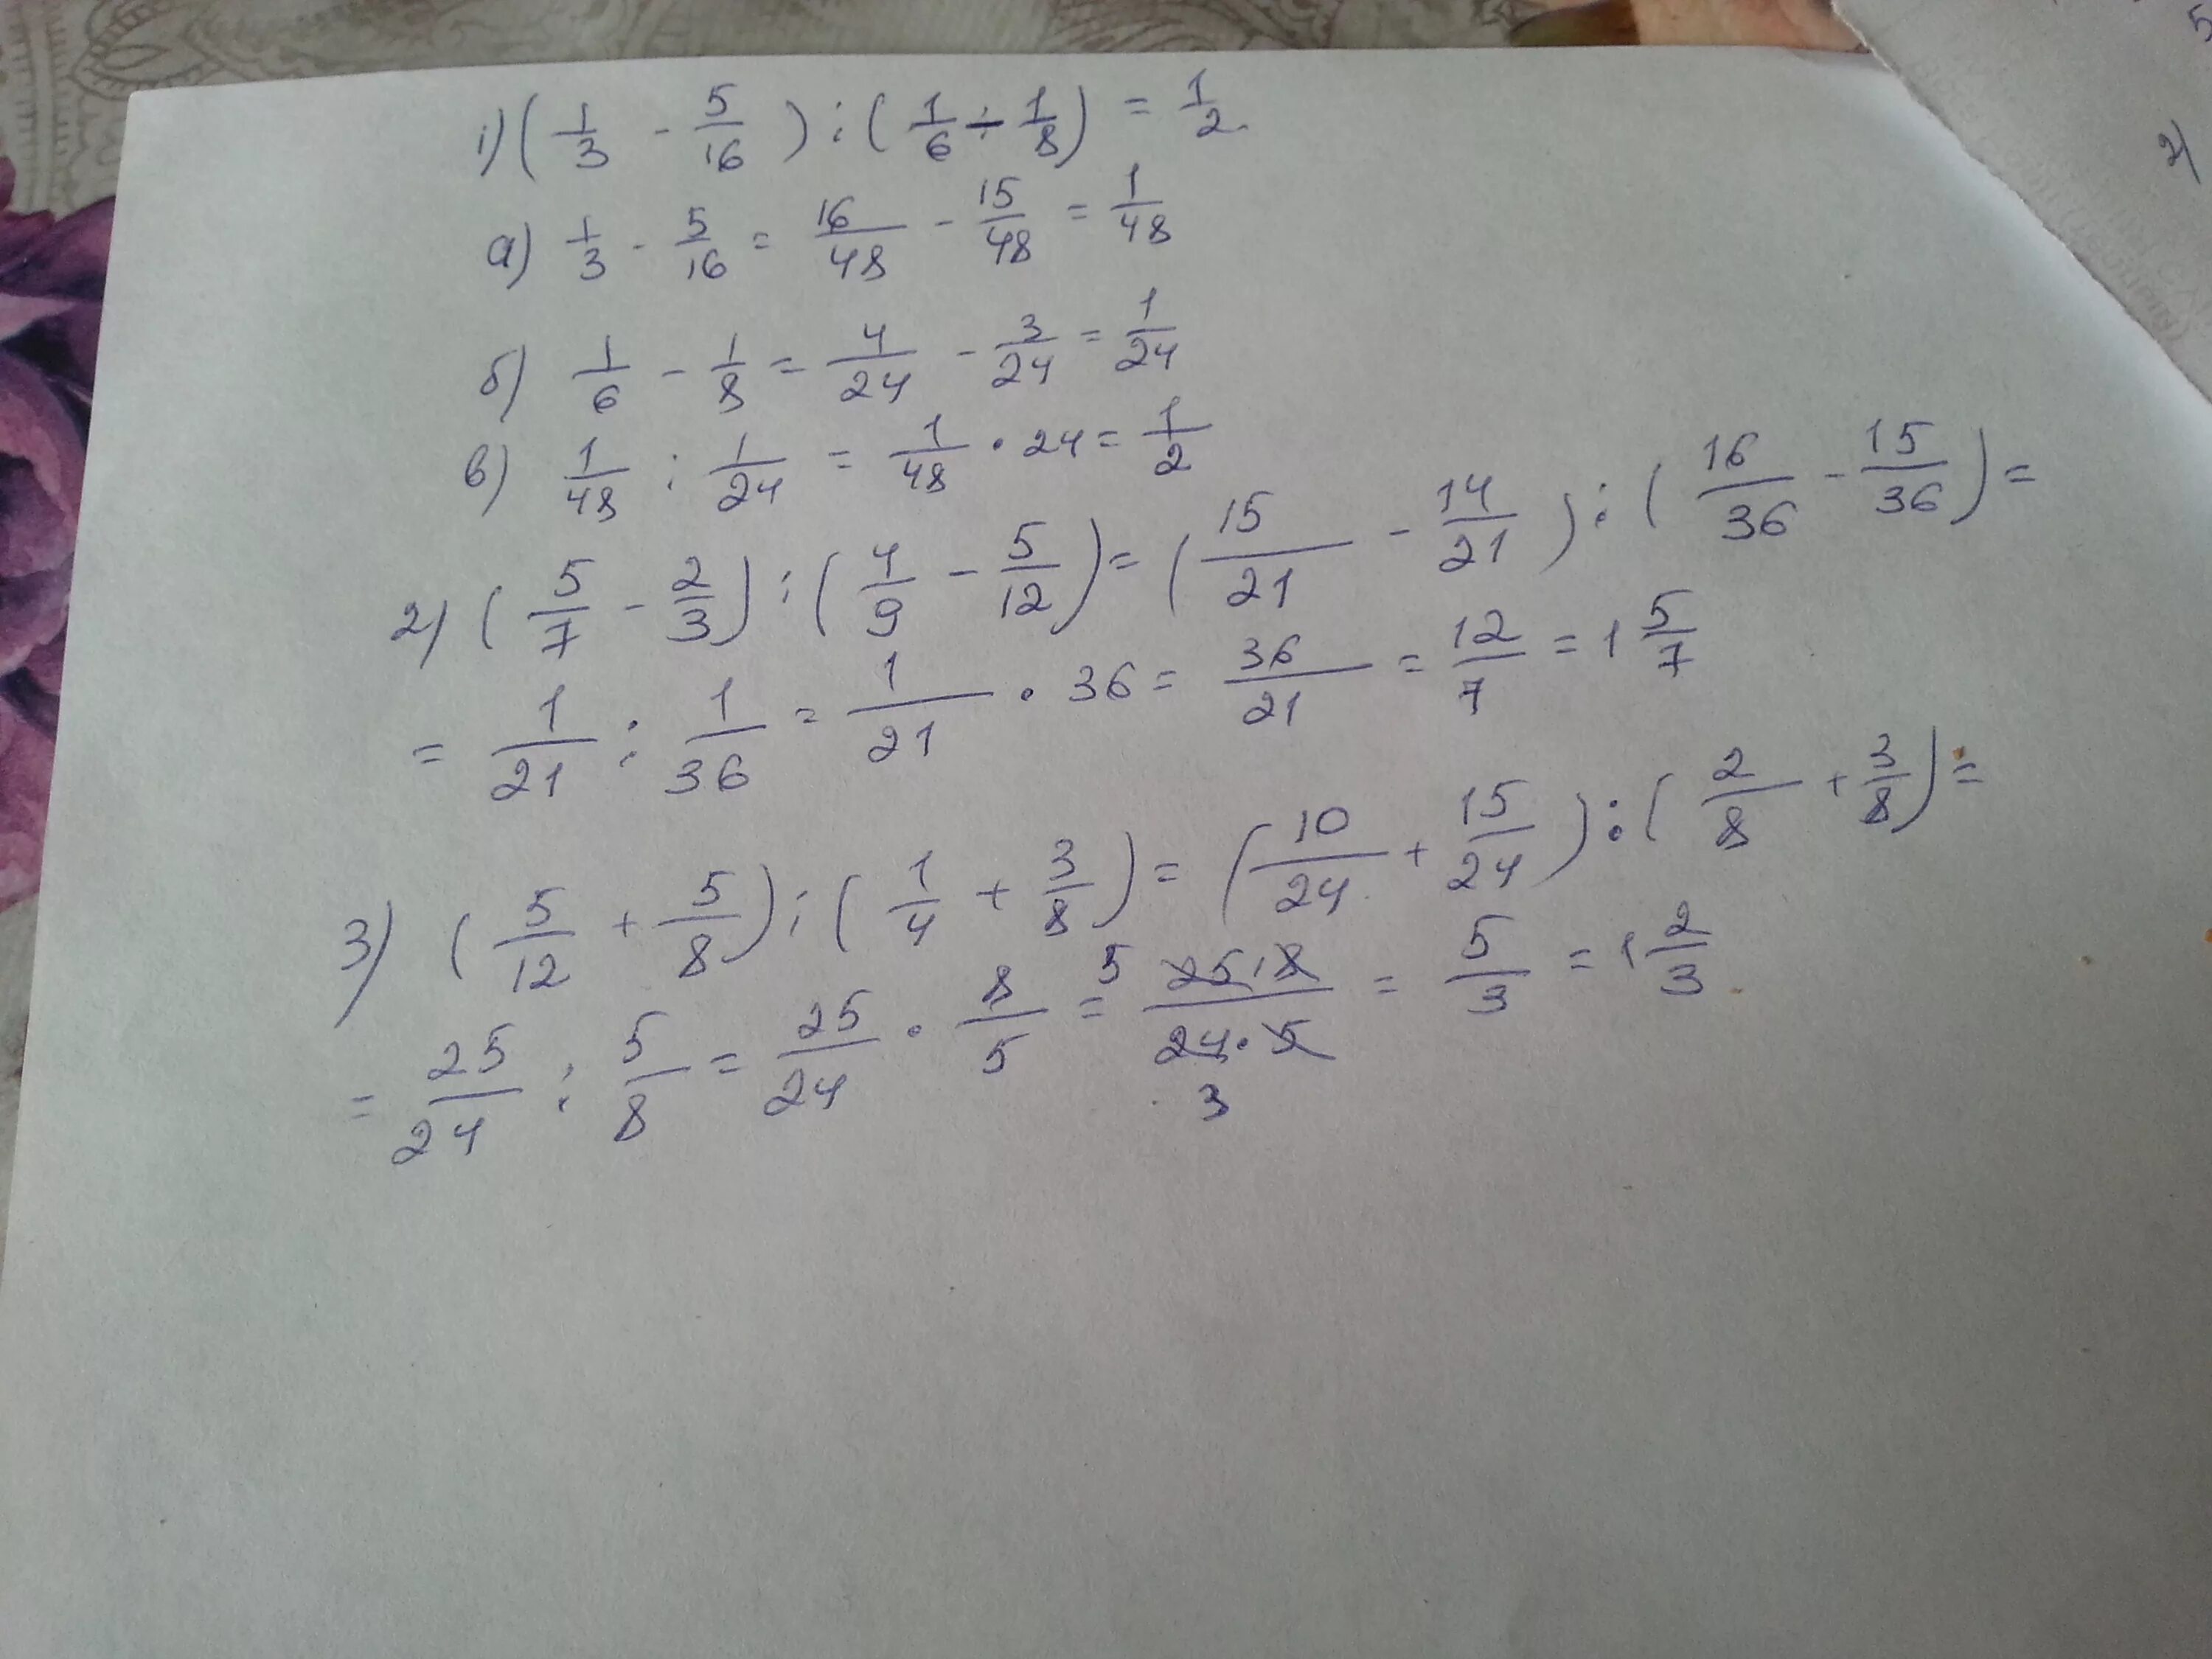 1) (1/3 - 5/16) : (1/6 - 1/8) = 1/2.
а) 1/3 - 5/16 = 16/48 - 15/48 = 1/48
б) 1/6 - 1/8 = 4/24 - 3/24 = 1/24
в) 1/48 : 1/24 = 1/48 · 24 = 1/2
2) (5/7 - 2/3) : (4/9 - 5/12) = (15/21 - 14/21) : (16/36 - 15/36) =
= 1/21 : 1/36 = 1/21 · 36 = 36/21 = 12/7 = 1 5/7
3) (5/12 + 5/8) : (1/4 + 3/8) = (10/24 + 15/24) : (2/8 + 3/8) =
= 25/24 : 5/8 = 25/24 · 8/5 = 5 25·8/24·5 3 = 5/3 = 1 2/3
5
2)